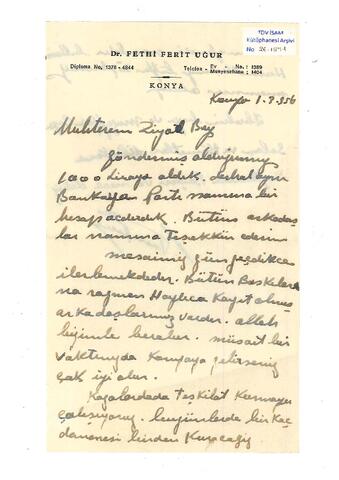 TDV İSAM
Kütüphanesi Arşivi
No
Dr. FETHİ FERİT UĞUR
Diploma No. 1378 - 4844
Telefon - Ev No.: 1389
Muayenehane : 1404
KONYA
Konya 1.9.956
Muhterem Ziyad Bey
göndermiş olduğunuz
1000 Lirayı aldık. derhal aynı
Bankadan Parti namına bir
hesap açdırdık. Bütün arkadaş
lar namına Teşekkür ederim
mesaimiz gün geçdikce
ilerlemekdedir. Bütün Baskılarda
na rağmen Haylıca Kayıt olmuş
arkadaşlarımız vardır. allah
bizimle beraber. müsait bir
vaktınızda Konyaya gelirseniz
çok iyi olur.
Kazalardada Teşkilat Kurmaya
çalışıyoruz. bugünlerde bir Kaç
danesini birden Kuracağız